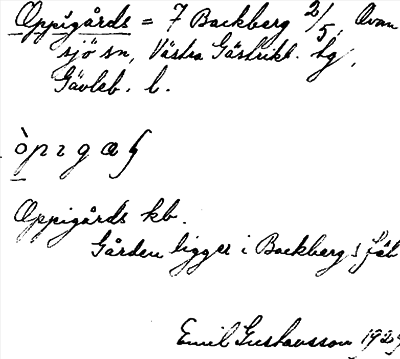 Oppigårds = 7 Backberg 2/5, Ovan
sjö sn, Västra Gästrikl. hg,
Gävleb. l.
òpıgaʂ
Oppigårds kb.
Gården ligger i Backbergs fäb
Emil Gustavsson 1929